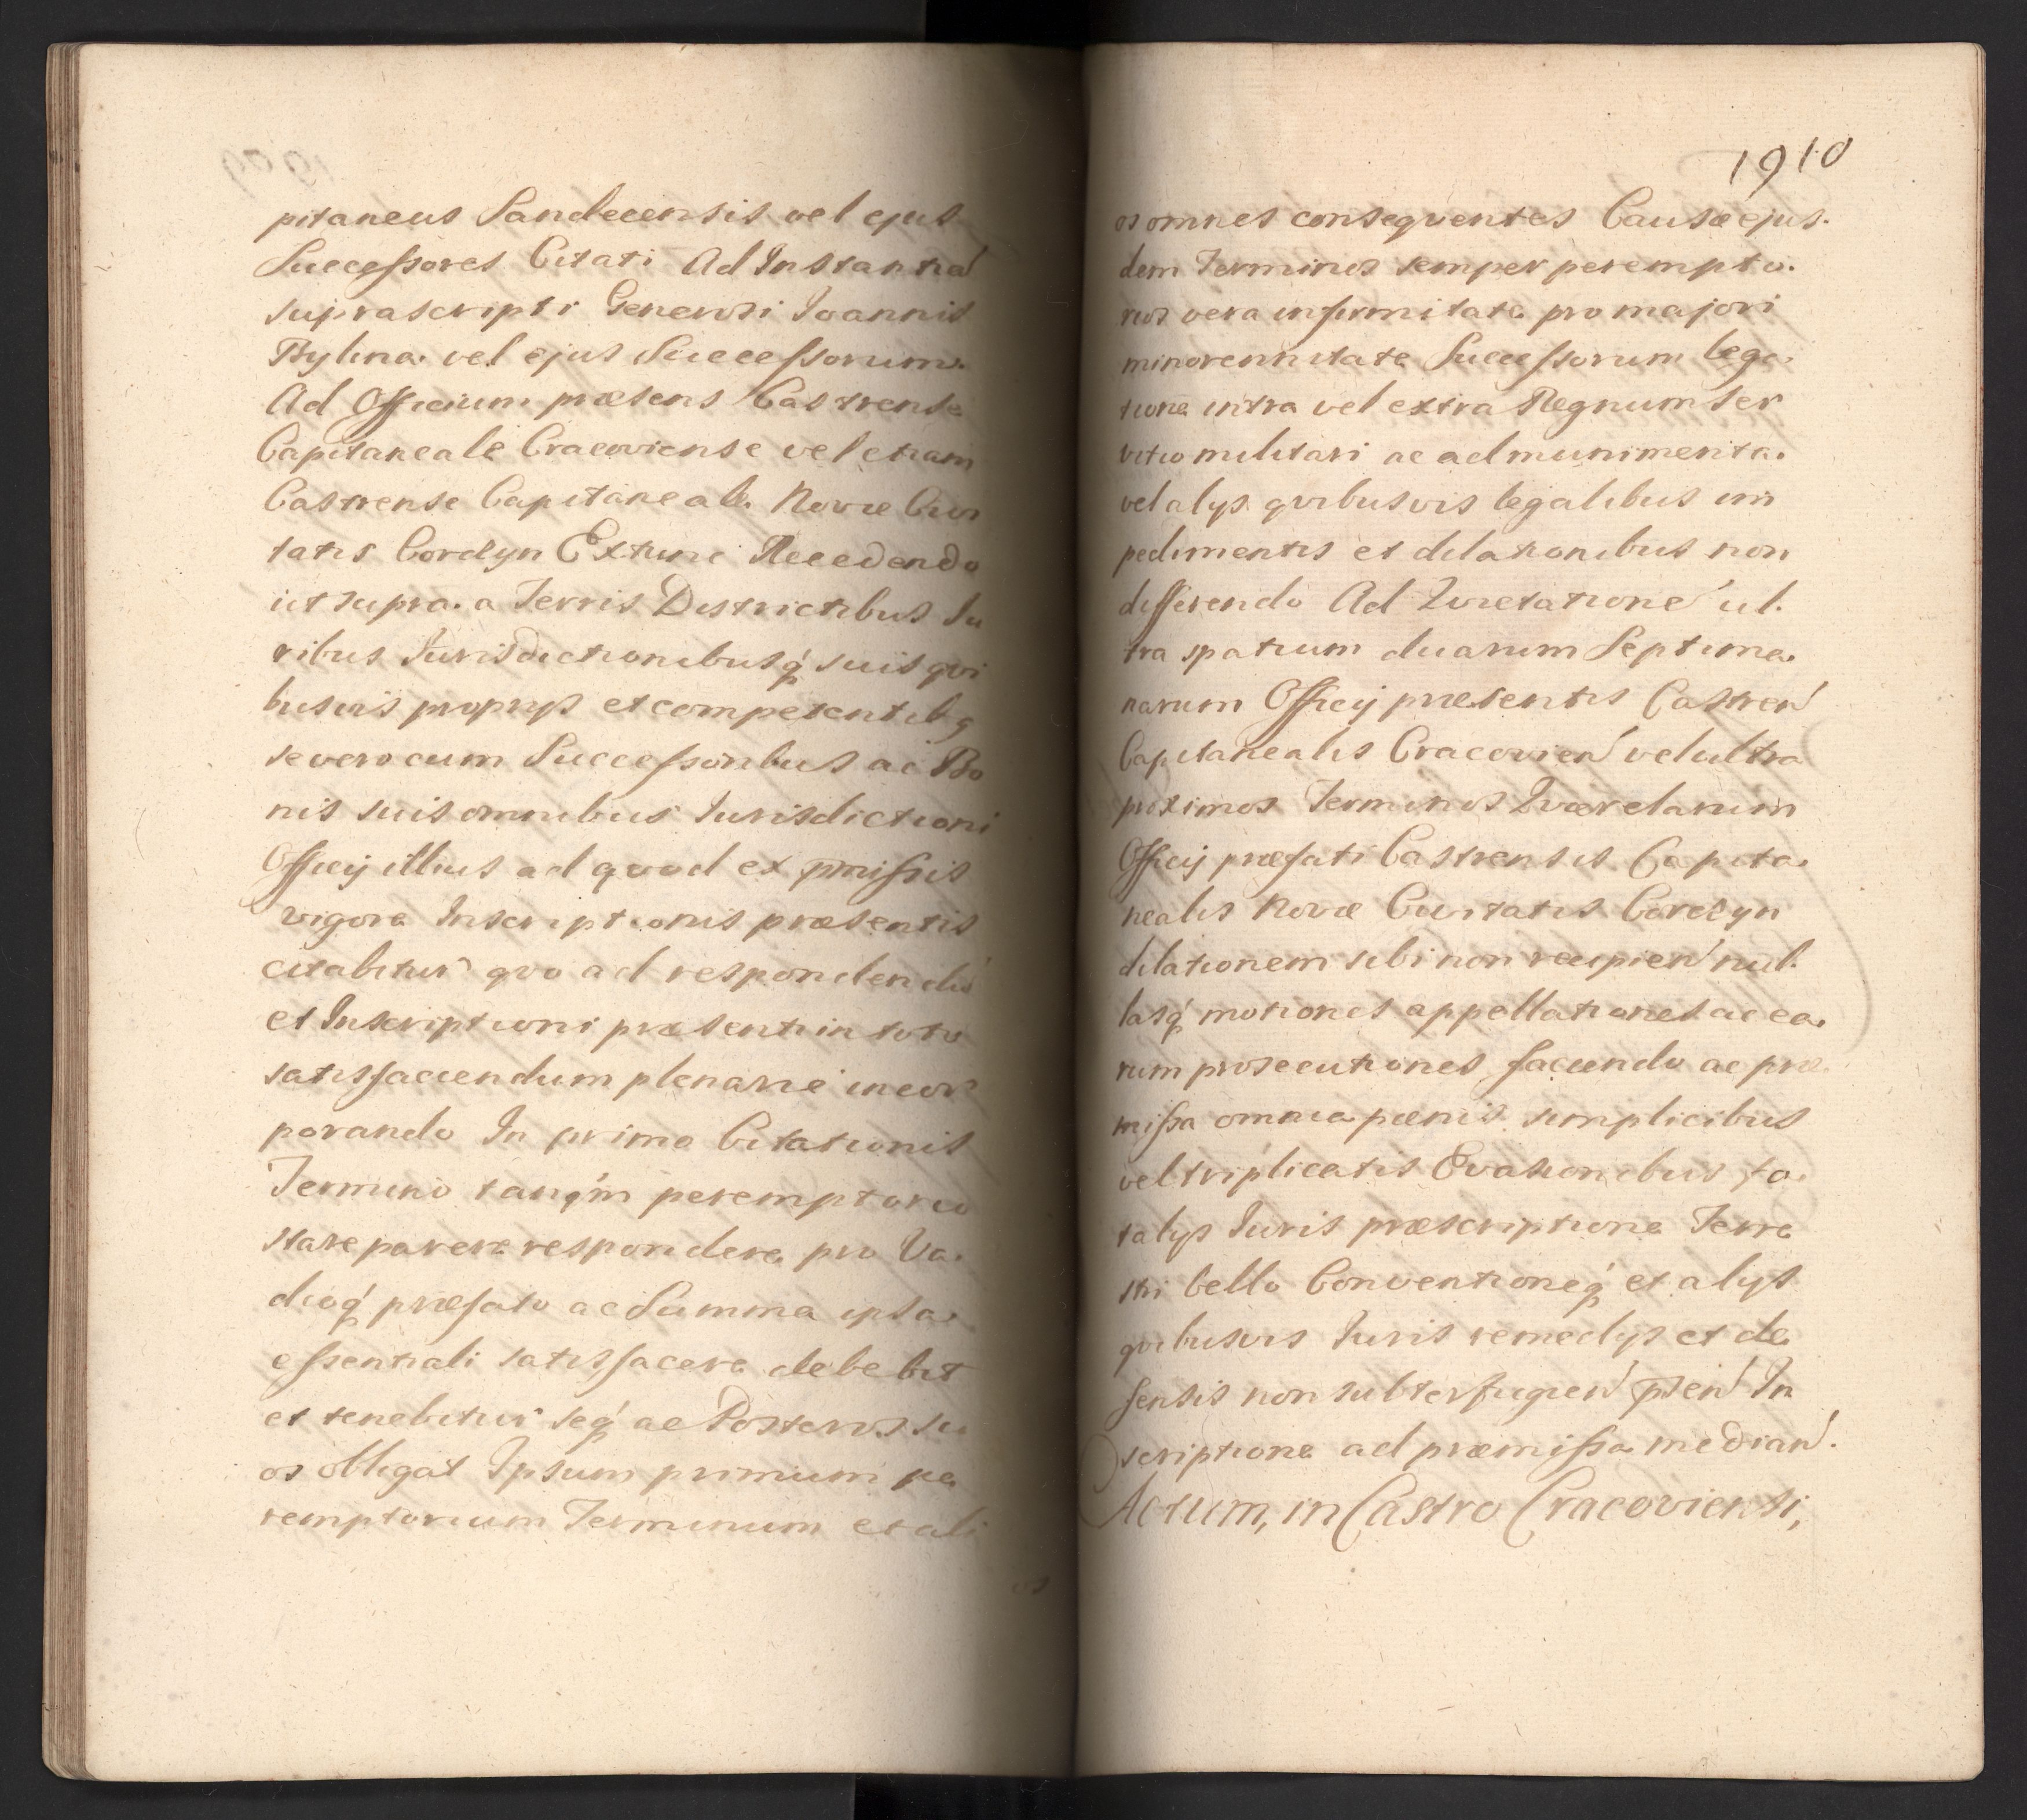 pitaneus Sandecensis vel ejus
Successores Citati Ad Instantiã
suprascripti Generosi Joannis
Bylina vel ejus Successorum
Ad Officium præsens Castrense
Capitaneale Cracoviense vel etiam
Castrense Capitaneale Novæ Civi
tatis Corcżyn Extunc Recedendo
ut supra a Terris Districtibus Ju
ribus Jurisdictionibusq́ suis qvi
busvis proprijs et competentibq
se vero cum Successoribus ac Bo
nis suis omnibus Jurisdictioni
Officij illius ad qvod ex p̃missis
vigore Inscriptionis præsentis
citabitur qvo ad respondendũ
et Inscriptioni præsenti in toto
satisfaciendum plenarie incor
porando In primo Citationis
Termino tanq́m peremptorio
stare parere respondere pro Va
dioq́ præfato ac Summa ipsa
essentiali satisfacere debebit
et tenebitur seq́ ac Posteros su
os obligat Ipsum primum pe
remptorium Terminum et ali
os
1910
os omnes conseqventes Causæ ejus
dem Terminos semper perempto
rios vera infirmitate pro majori
minorennitate Successorum lega
tione intra vel extra Regnum Ser
vitio militari ac ad munimenta
vel alijs qvibusvis legalibus im
pedimentis et dilationibus non
differendo Ad Qvietationẽ ul
tra spatium duarum Septima
narum Officij præsentis Castren̾
Capitanealis Cracovien̾ vel ultra
proximos Terminos Qværelarum
Officij præfati Castrensis Capita
nealis Novæ Civitatis Corcżyn
dilationem sibi non recipien̾ nul
lasq́ motiones appellationes ac ea
rum prosecutiones faciendo ac præ
missa omnia pœnis simplicibus
vel triplicatis Evasionibus fa
talijs Juris præscriptione Terre
stri bello Conventioneq́ et alijs
qvibusvis Juris remedijs et de
fensis non subterfugien̾ p̃sen̾ In
scriptione ad præmissa median̾.
Actum, in Castro Cracoviensi,